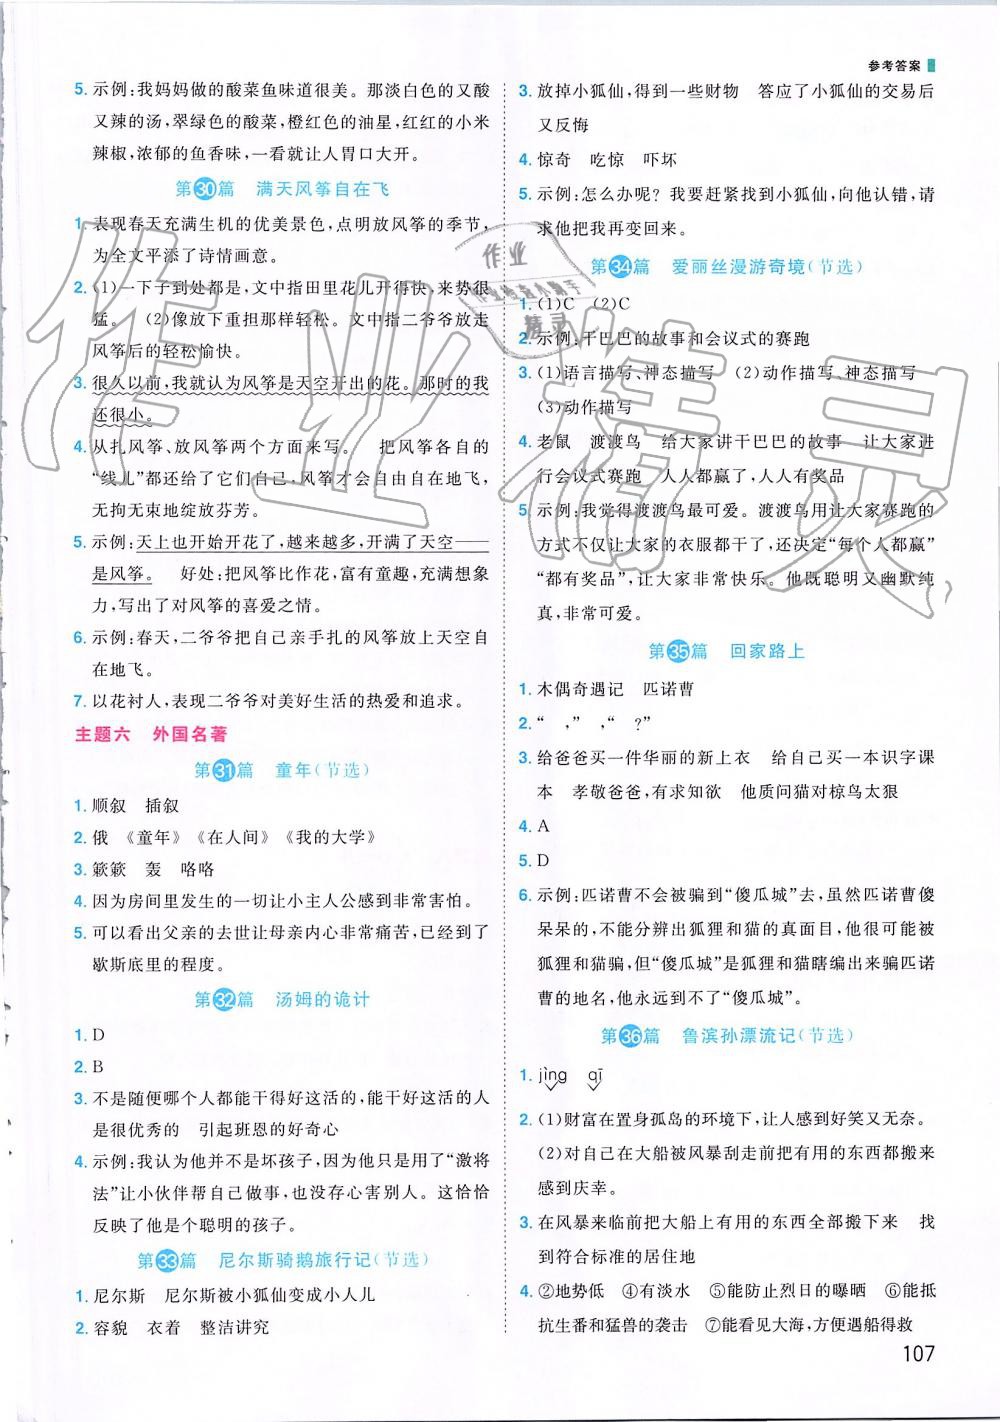 参考答案
5. 示例:我妈妈做的酸菜鱼味道很美。那淡白色的又酸
又辣的汤,翠绿色的酸菜,橙红色的油星,红红的小米
辣椒,浓郁的鱼香味,一看就让人胃口大开。
第30篇 满天风筝自在飞
1. 表现春天充满生机的优美景色,点明放风筝的季节,
为全文平添了诗情画意。
2. (1)一下子到处都是,文中指田里花儿开得快,来势很
猛。 (2)像放下重担那样轻松。文中指二爷爷放走
风筝后的轻松愉快。
3. 很久以前,我就认为风筝是天空开出的花。那时的我
还很小。
4. 从扎风筝、放风筝两个方面来写。 把风筝各自的
“线儿”都还给了它们自己,风筝才会自由自在地飞,
无拘无束地绽放芬芳。
5. 示例:天上也开始开花了,越来越多,开满了天空——
是风筝。 好处:把风筝比作花,富有童趣,充满想象
力,写出了对风筝的喜爱之情。
6. 示例:春天,二爷爷把自己亲手扎的风筝放上天空自
在地飞。
7. 以花衬人,表现二爷爷对美好生活的热爱和追求。
主题六 外国名著
第31篇 童年(节选)
1. 顺叙 插叙
2. 俄 《童年》《在人间》《我的大学》
3. 簌簌 轰 咯咯
4. 因为房间里发生的一切让小主人公感到非常害怕。
5. 可以看出父亲的去世让母亲内心非常痛苦,已经到了
歇斯底里的程度。
第32篇 汤姆的诡计
1. D
2. B
3. 不是随便哪个人都能干得好这活的,能干好这活的人
是很优秀的 引起班恩的好奇心
4. 示例:我认为他并不是坏孩子,因为他只是用了“激将
法”让小伙伴帮自己做事,也没存心害别人。这恰恰
反映了他是个聪明的孩子。
第33篇 尼尔斯骑鹅旅行记(节选)
1. 尼尔斯 尼尔斯被小狐仙变成小人儿
2. 容貌 衣着 整洁讲究
3. 放掉小狐仙,得到一些财物 答应了小狐仙的交易后
又反悔
4. 惊奇 吃惊 吓坏
5. 示例:怎么办呢?我要赶紧找到小狐仙,向他认错,请
求他把我再变回来。
第34篇 爱丽丝漫游奇境(节选)
1. (1)C (2)C
2. 示例:干巴巴的故事和会议式的赛跑
3. (1)语言描写、神态描写 (2)动作描写、神态描写
(3)动作描写
4. 老鼠 渡渡鸟 给大家讲干巴巴的故事 让大家进
行会议式赛跑 人人都赢了,人人有奖品
5. 示例:我觉得渡渡鸟最可爱。渡渡鸟用让大家赛跑的
方式不仅让大家的衣服都干了,还决定“每个人都赢”
“都有奖品”,让大家非常快乐。他既聪明又幽默纯
真,非常可爱。
第35篇 回家路上
1. 木偶奇遇记 匹诺曹
2. “ ,” ,“ ?”
3. 给爸爸买一件华丽的新上衣 给自己买一本识字课
本 孝敬爸爸,有求知欲 他质问猫对椋鸟太狠
4. A
5. D
6. 示例:匹诺曹不会被骗到“傻瓜城”去,虽然匹诺曹傻
呆呆的,不能分辨出狐狸和猫的真面目,他有可能被
狐狸和猫骗,但“傻瓜城”是狐狸和猫瞎编出来骗匹诺
曹的地名,他永远到不了“傻瓜城”。
第36篇 鲁滨孙漂流记(节选)
1. jìng qī
2. (1)财富在置身孤岛的环境下,让人感到好笑又无奈。
(2)对自己在大船被风暴刮走前把有用的东西都搬走
感到庆幸。
3. 在风暴来临前把大船上有用的东西全部搬下来 找
到符合标准的居住地
4. ②地势低 ④有淡水 ⑤能防止烈日的曝晒 ⑥能抵
抗生番和猛兽的袭击 ⑦能看见大海,方便遇船得救
107
作业精灵
作业
作业检查小助手
精灵